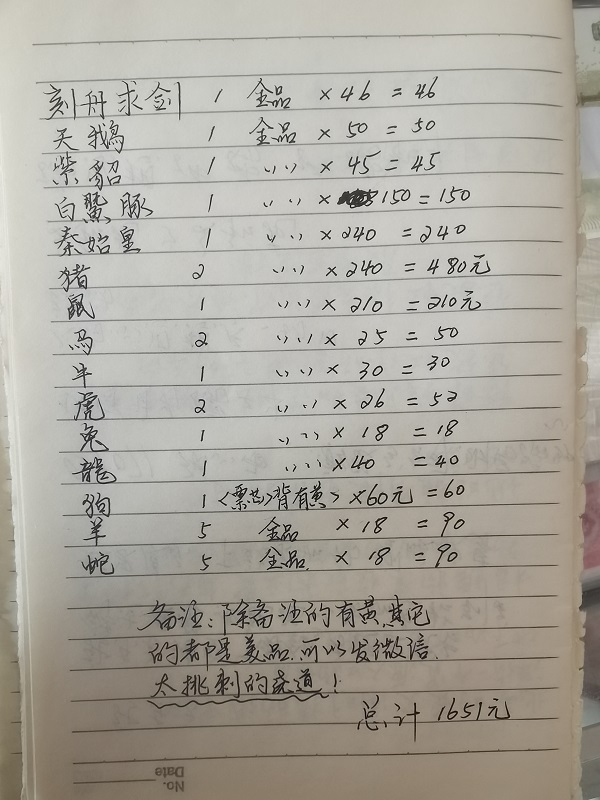 刻舟求剑 1 全品 ×46 = 46
天鹅 1 全品 ×50 = 50
紫貂 1 〃 ×45 = 45
白鱀豚 1 〃 × 150 = 150
秦始皇 1 〃 ×240 = 240
猪 2 〃 ×240 = 480元
鼠 1 〃 ×210 = 210元
马 2 〃 × 25 = 50
牛 1 〃 × 30 = 30
虎 2 〃 × 26 = 52
兔 1 〃 × 18 = 18
龍 1 〃 ×40 = 40
狗 1 〈票芯〉背有黄〉 ×60元 = 60
羊 5 全品 × 18 = 90
蛇 5 全品. × 18 = 90
备注：除备注的有黄,其它
的都是美品.可以发微信.
太挑刺的绕道！
总计 1651元
No.
Date